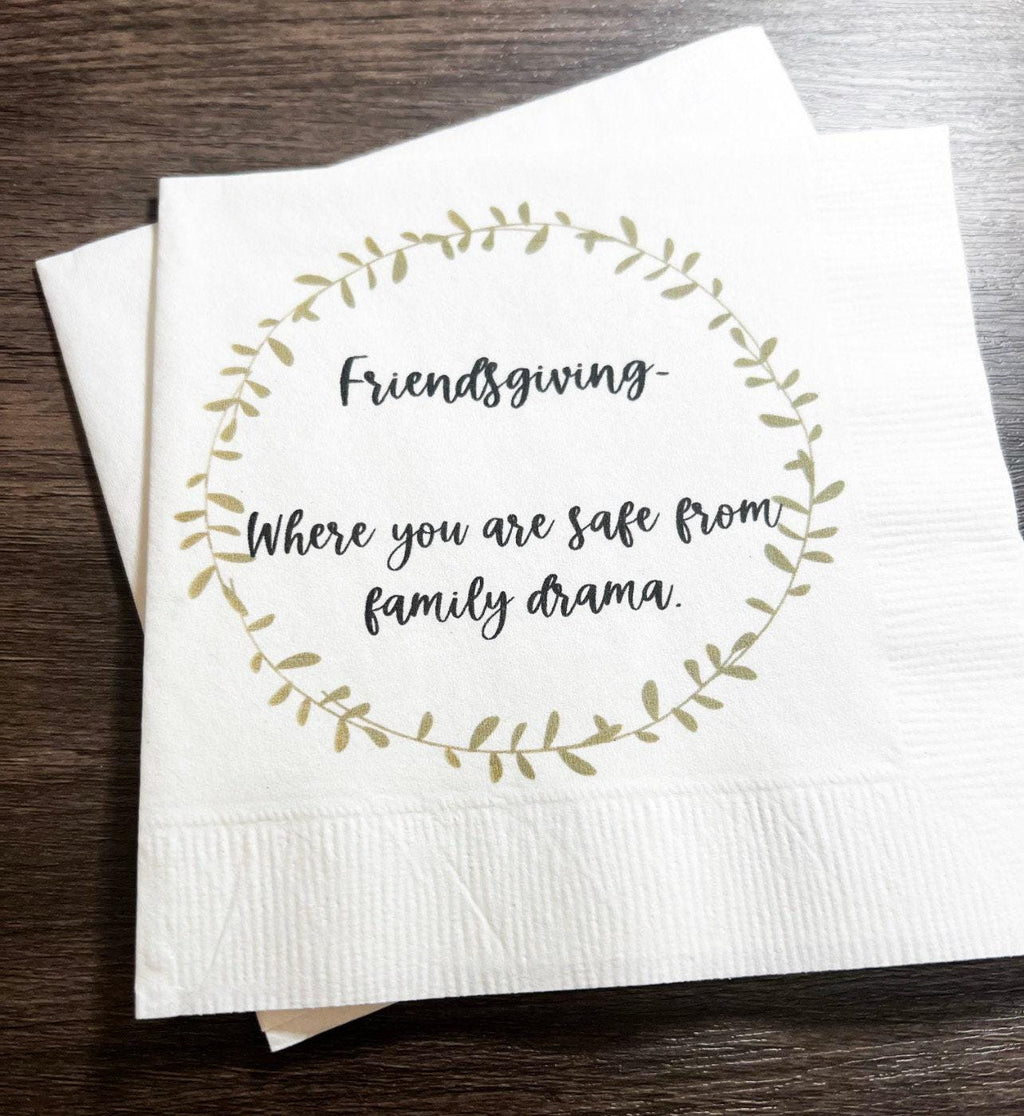 Friendsgiving-
Where you are safe from
family drama.